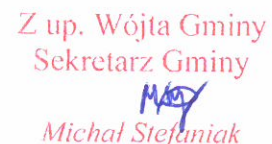 Z up. Wójta Gminy
Sekretarz Gminy
Michał Stefaniak